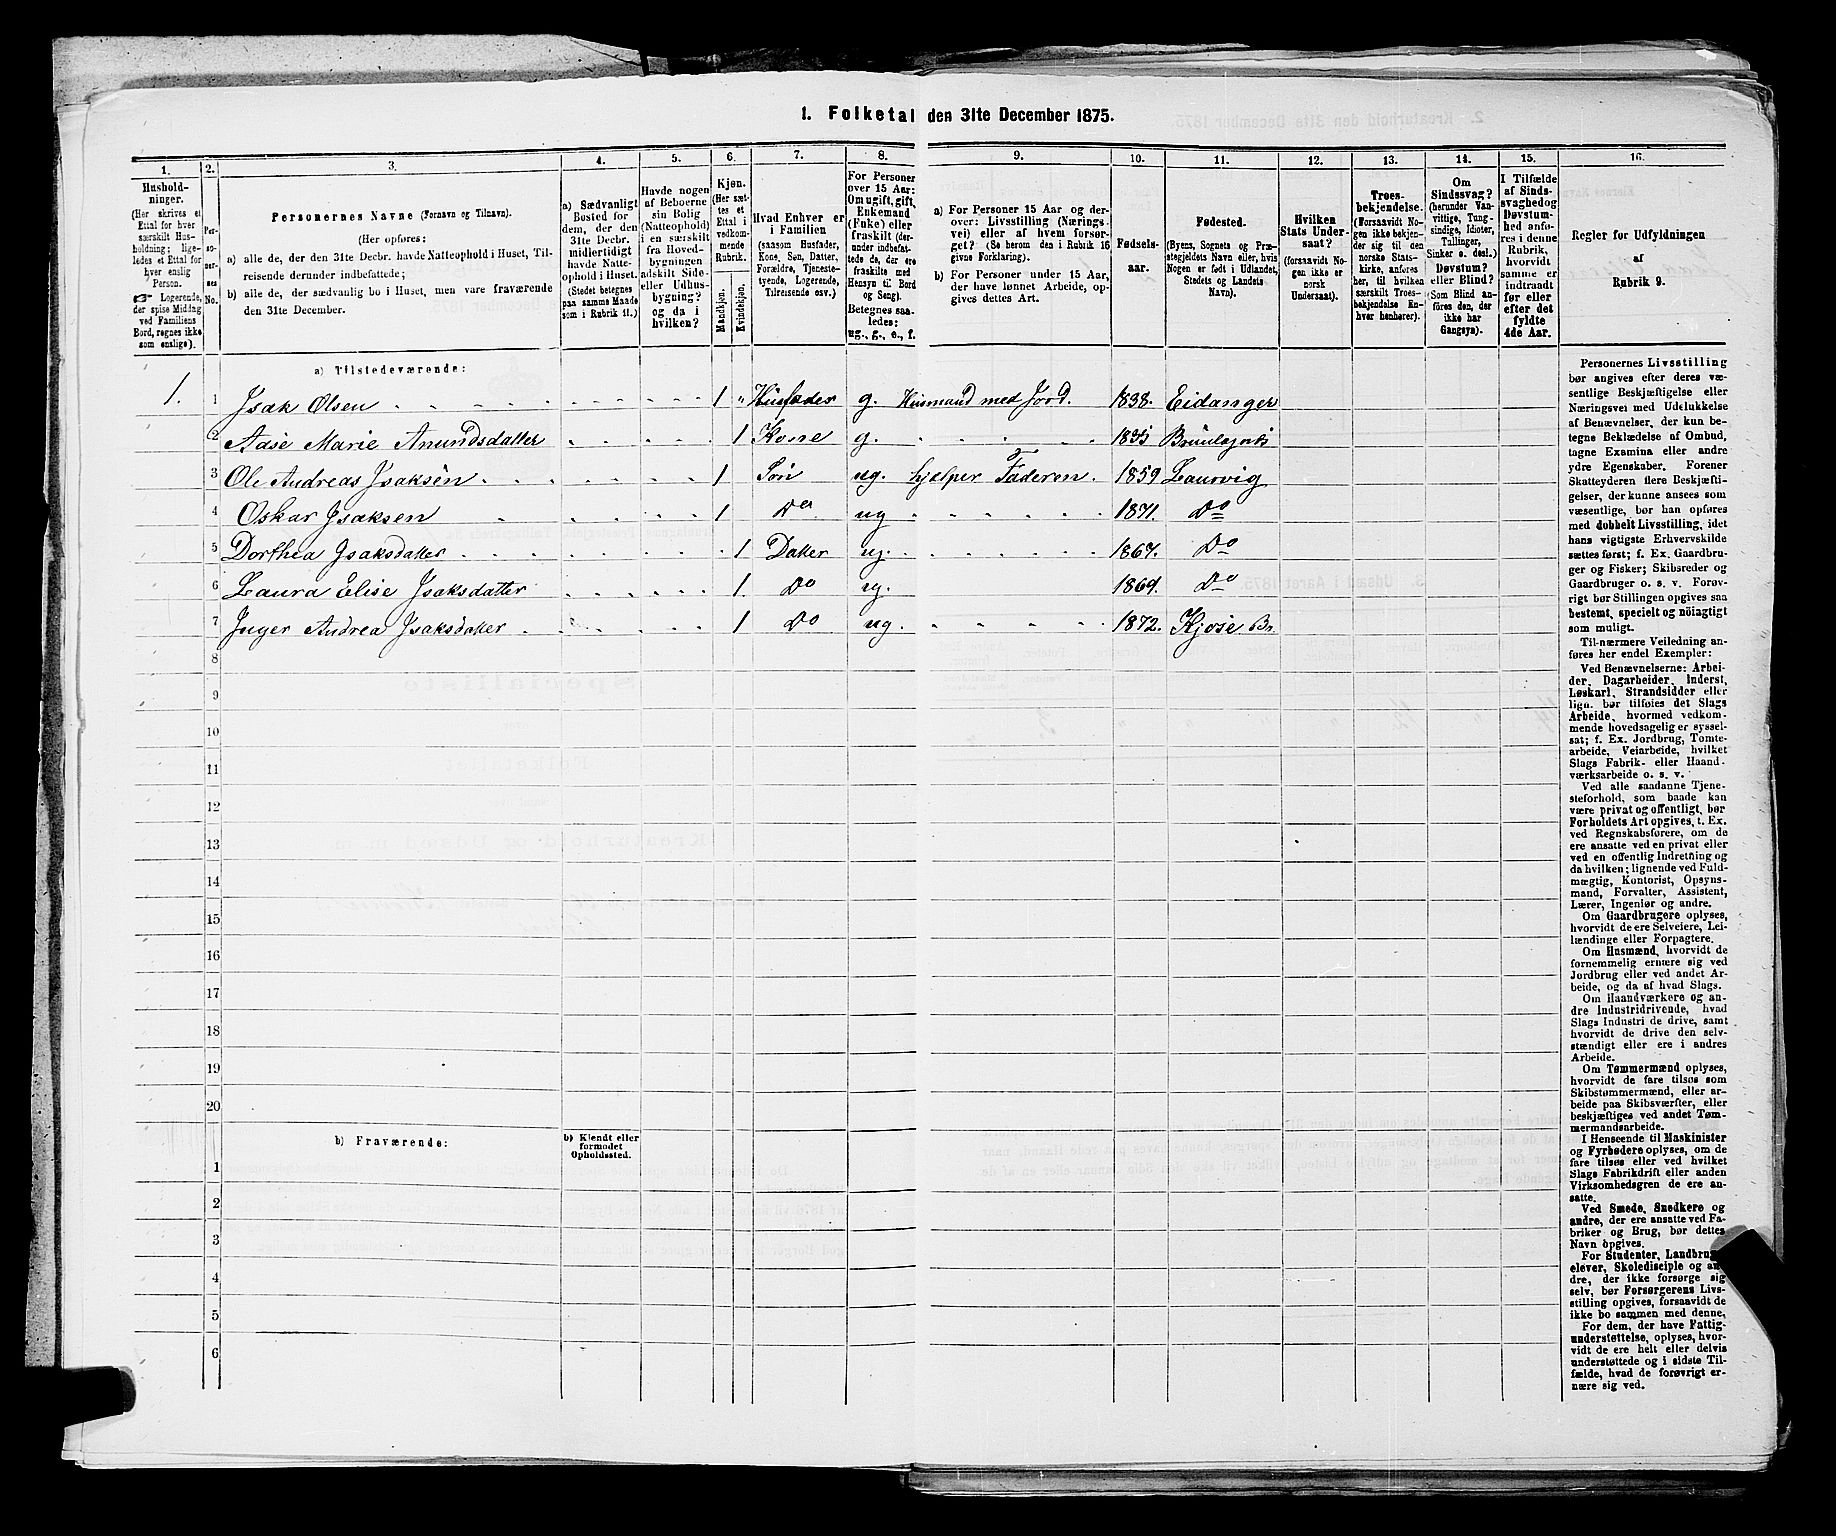 1. Folketal den 31te December 1875.
1. 2. 3. 4. 5. 6. 7. 8. 9. 10. 11. 12. 13. 14. 15. 16.
Hushold-
ninger.
(Her skrives et
Ettal for hver
særskilt Hus-
holdning; lige-
ledes et Ettal for
hver enslig
Person.
☞ Logerende,
der spise Middag
ved Familiens
Bord, regnes ikke
som enslige).
Per-
so-
ner-
nes
No.
Personernes Navne (Fornavn og Tilnavn).
(Her opføres:
a) alle de, der den 31te Decbr. havde Natteophold i Huset, Til-
reisende derunder indbefattede;
b) alle de, der sædvanlig bo i Huset, men vare fraværende
den 31te December.
a) Sædvanligt
Bosted for
dem, der den
31te Decbr.
midlertidigt
havde Natte-
ophold i Huset.
(Stedet betegnes
paa samme Maade
som i Rubrik 11.)
Havde nogen
af Beboerne
sin Bolig
(Natteophold)
i en særskilt
fra Hoved-
bygningen
adskilt Side-
eller Udhus-
bygning? og
og da i
hvilken?
Kjøn.
(Her sæt-
tes et
Ettal i
vedkom-
mende
Rubrik.
Mandkjøn.
Kvindekjøn.
Hvad Enhver er
i Familien
(saasom Husfader,
Kone, Søn, Datter,
Forældre, Tjeneste-
tyende, Logerende,
Tilreisende osv.)
For Personer
over 15 Aar:
Om ugift, gift,
Enkemand
(Enke) eller
fraskilt (der-
under indbefat-
tede de, der ere
fraskilte med
Hensyn til Bord
og Seng).
Betegnes saa-
ledes:
ug., g., e., f.
a) For Personer 15 Aar og der-
over: Livsstilling (Nærings-
vei) eller af hvem forsør-
get? (Se herom den i Rubrik 16
givne Forklaring).
b) For Personer under 15 Aar,
der have lønnet Arbeide, op-
gives dettes Art.
Fødsels-
aar.
Fødested.
(Byens, Sognets og Præ-
stegjeldets Navn eller, hvis
Nogen er født i Udlandet,
Stedets og Landets
Navn).
Hvilken
Stats Under-
saat?
(forsaavidt No-
gen ikke er
norsk
Undersaat).
Troes-
bekjendelse.
(Forsaavidt No-
gen ikke bekjen-
der sig til den
norske Stats-
kirke, anføres
her, til hvilken
særskilt Troes-
bekjendelse En-
hver henhører).
Om
Sindssvag?
(herunder Van-
vittige, Tung-
sindige, Idioter,
Tullinger,
Sinker o. desl.)
Døvstum?
eller Blind?
(Som Blind an-
føres den, der
ikke har
Gangsyn).
I Tilfælde
af Sinds-
svaghed og
Døvstum-
hed anfø-
res i denne
Rubrik,
hvorvidt
samme er
indtraadt
før eller
efter det
fyldte
4de Aar.
Regler for Udfyldningen
af
Rubrik 9.
a) Tilstedeværende:
1. 1 Isak Olsen 1 " Husfader g. Husmand med Jord. 1838. Eidanger
2 Aase Marie Anundsdatter 1 Kone g. 1835
3 Ole Andreas Isaksen 1 Søn ug. hjælper Faderen. 1859 Laurvig
4 Oskar Isaksen 1 Do ug 1871. Do
5 Dorthea Isaksdatter 1 Datter ug. 1867. Do
6 Laura Elise Isaksdatter 1. Do ug. 1869. Do
7 Inger Andrea Isaksdatter 1 Do ug 1872. Kjose Br.
8
9
10
11
12
13
14
15
16
17
18
19
20
b) Fraværende:
b) Kjendt eller
formodet
Opholdssted.
1
2
3
4
5
6
Personernes Livsstilling
bør angives efter deres væ-
sentlige Beskjæftigelse eller
Næringsvei med Udelukkelse
af Benævnelser, der kun be-
tegne Beklædelse af Ombud,
tagne Examina eller andre
ydre Egenskaber. Forener
Skatteyderen flere Beskjæfti-
gelser, der kunne ansees som
væsentlige, bør han opføres
med dobbelt Livsstilling, idet
hans vigtigste Erhvervskilde
sættes først; f. Ex. Gaardbru-
ger og Fisker; Skibsreder og
Gaardbruger o. s. v. Forøv-
rigt bør Stillingen opgives saa
bestemt, specielt og nöiagtigt
som muligt.
Til-nærmere Veiledning an-
føres her endel Exempler:
Ved Benævnelserne: Arbei-
der, Dagarbeider, Inderst,
Løskarl, Strandsidder eller
lign. bør tilføies det Slags
Arbeide, hvormed vedkom-
mende hovedsagelig er syssel-
sat; f. Ex. Jordbrug, Tomte-
arbeide, Veiarbeide, hvilket
Slags Fabrik- eller Haand-
værksarbeide o. s. v.
Ved alle saadanne Tjene-
steforhold, som baade kan
være privat og offentligt, bør
Forholdets Art opgives, t. Ex.
ved Regnskabsførere, om de
ere ansatte ved en privat eller
ved en offentlig Indretning og
da hvilken; lignende ved Fuld-
mægtig, Kontorist, Opsyns-
mand, Forvalter, Assistent,
Lærer, Ingeniør og andre.
Om Gaardbrugere oplyses,
hvorvidt de ere Selveiere, Lei-
lændinge eller Forpagtere.
Om Husmænd, hvorvidt de
fornemmelig ernære sig ved
Jordbrug eller ved andet Ar-
beide, og da af hvad Slags.
Om Haandværkere og an-
dre Industridrivende, hvad
Slags Industri de drive, samt
hvorvidt de drive den selv-
stændigt eller ere i andres
Arbeide.
Om Tømmermænd oplyses,
hvorvidt de fare tilsøs som
Skibstømmermænd, eller ar-
beide paa Skibsværfter, eller
beskjæftiges ved andet Tøm-
mermandsarbeide.
I Henseende til Maskinister
og Fyrbødere oplyses, om de
fare tilsøs eller ved hvilket
Slags Fabrikdrift eller anden
Virksomhedsgren de ere an-
satte.
Ved Smede, Snedkere og
andre, der ere ansatte ved Fa-
briker og Brug, bør dettes
Navn opgives.
For Studenter, Landbrugs-
elever, Skoledisciple og an-
dre, der ikke forsørge sig
selv, bør Forsørgerens Livs-
stilling opgives, forsaavidt de
ikke bo sammen med denne.
For dem, der have Fattig-
understøttelse, oplyses, hvor-
vidt de ere helt eller delvis
understøttede og i sidste Til-
fælde, hvad de forøvrigt er-
nære sig ved.